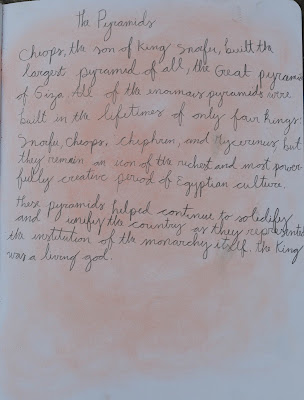 The Pyramids
Cheops, the son of King Snofu, built the
largest pyramid of all, the Great pyramid
of Giza. All of the enormous pyramids were
built in the lifetimes of only four kings:
Snofu, Cheops, Chiphren, and Mycerenus but
they remain an icon of the richest and most power-
fully creative period of Egyptian culture.
These pyramids helped continue to solidify
and unify the country as they represented
the institution of the monarchy itself. The King
was a living god.